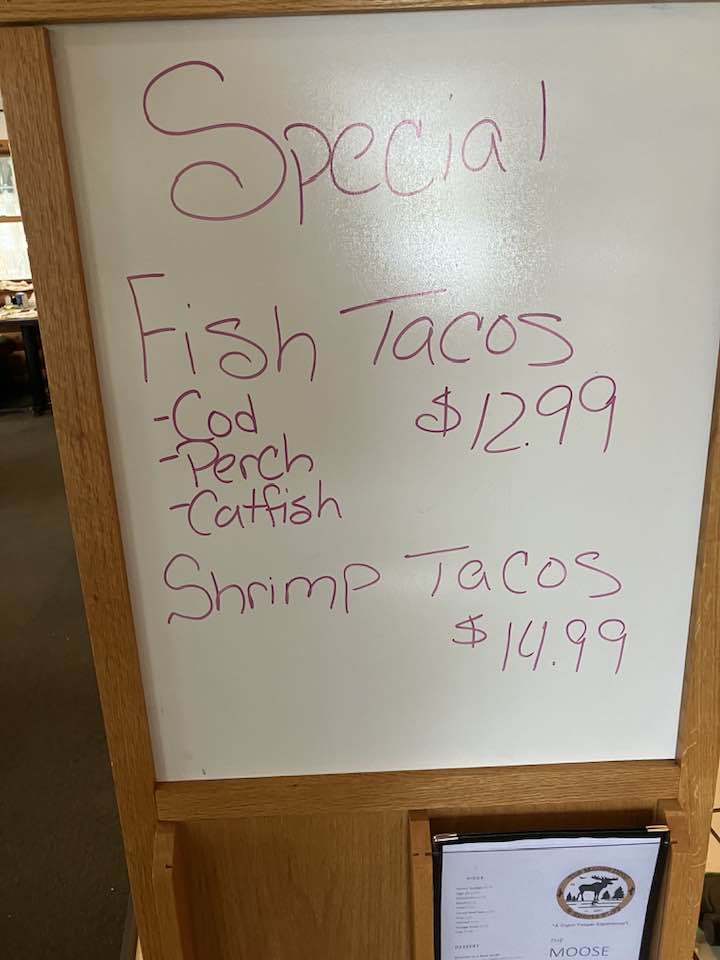 Special
Fish Tacos
-Cod $12.99
-Perch
-Catfish
Shrimp Tacos
$14.99
SIDES
DESSERT
THE
MOOSE